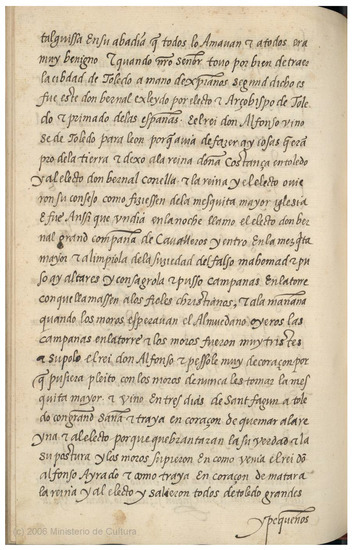 tal guissa en su abadia q̄ todos lo Amauan τ a todos era
muy benigno τ quando nr̄o señor touo por bien de traer
la cibdad de Toledo a mano de xp̄ianos segund dicho es
fue este don bernal exleydo por electo τ Arçobispo de Tole
do τ primado delas españas. E el rei don Alfonso vino
se de Toledo para leon porq̄ auia de fazer ay cosas q̄ erā
pro dela tierra τ dexo ala reina doña Costança en toledo
y al electo don bernal con ella τ la reina y el electo ouie
ron su consejo como fiziessen dela mesquita mayor iglesia
E fue Anssi que vn dia en la noche llamo el electo don ber
nal grand compaña de Caualleros y entro En la mezq̄ta
mayor τ alimpiola dela suziedad del falso mahomad τ pu
so ay altares y consagrola τ pusso campanas En la torre
con que llamassen alos fieles christianos, τ ala mañana
quando los moros esperauan el Almuedano oyeros las
campanas en la torre τ los moros fueron muy tristes
τ supolo el rei don Alfonso τ pessole muy de coraçon por
q̄ pusiera pleito con los moros de nunca les tomar la mes
quita mayor. τ vino En tres dias de Sant fagun a tole
do con grand saña τ traya en coraçon de quemar ala re
yna τ al electo por que quebrantaran la su verdad τ la
su postura y los moros supieron En como venia el rei dō
alfonso Ayrado τ como traya En coraçon de matar a
la reina y al electo y salieron todos de toledo grandes
y pequeños
(c) 2006 Ministerio de Cultura